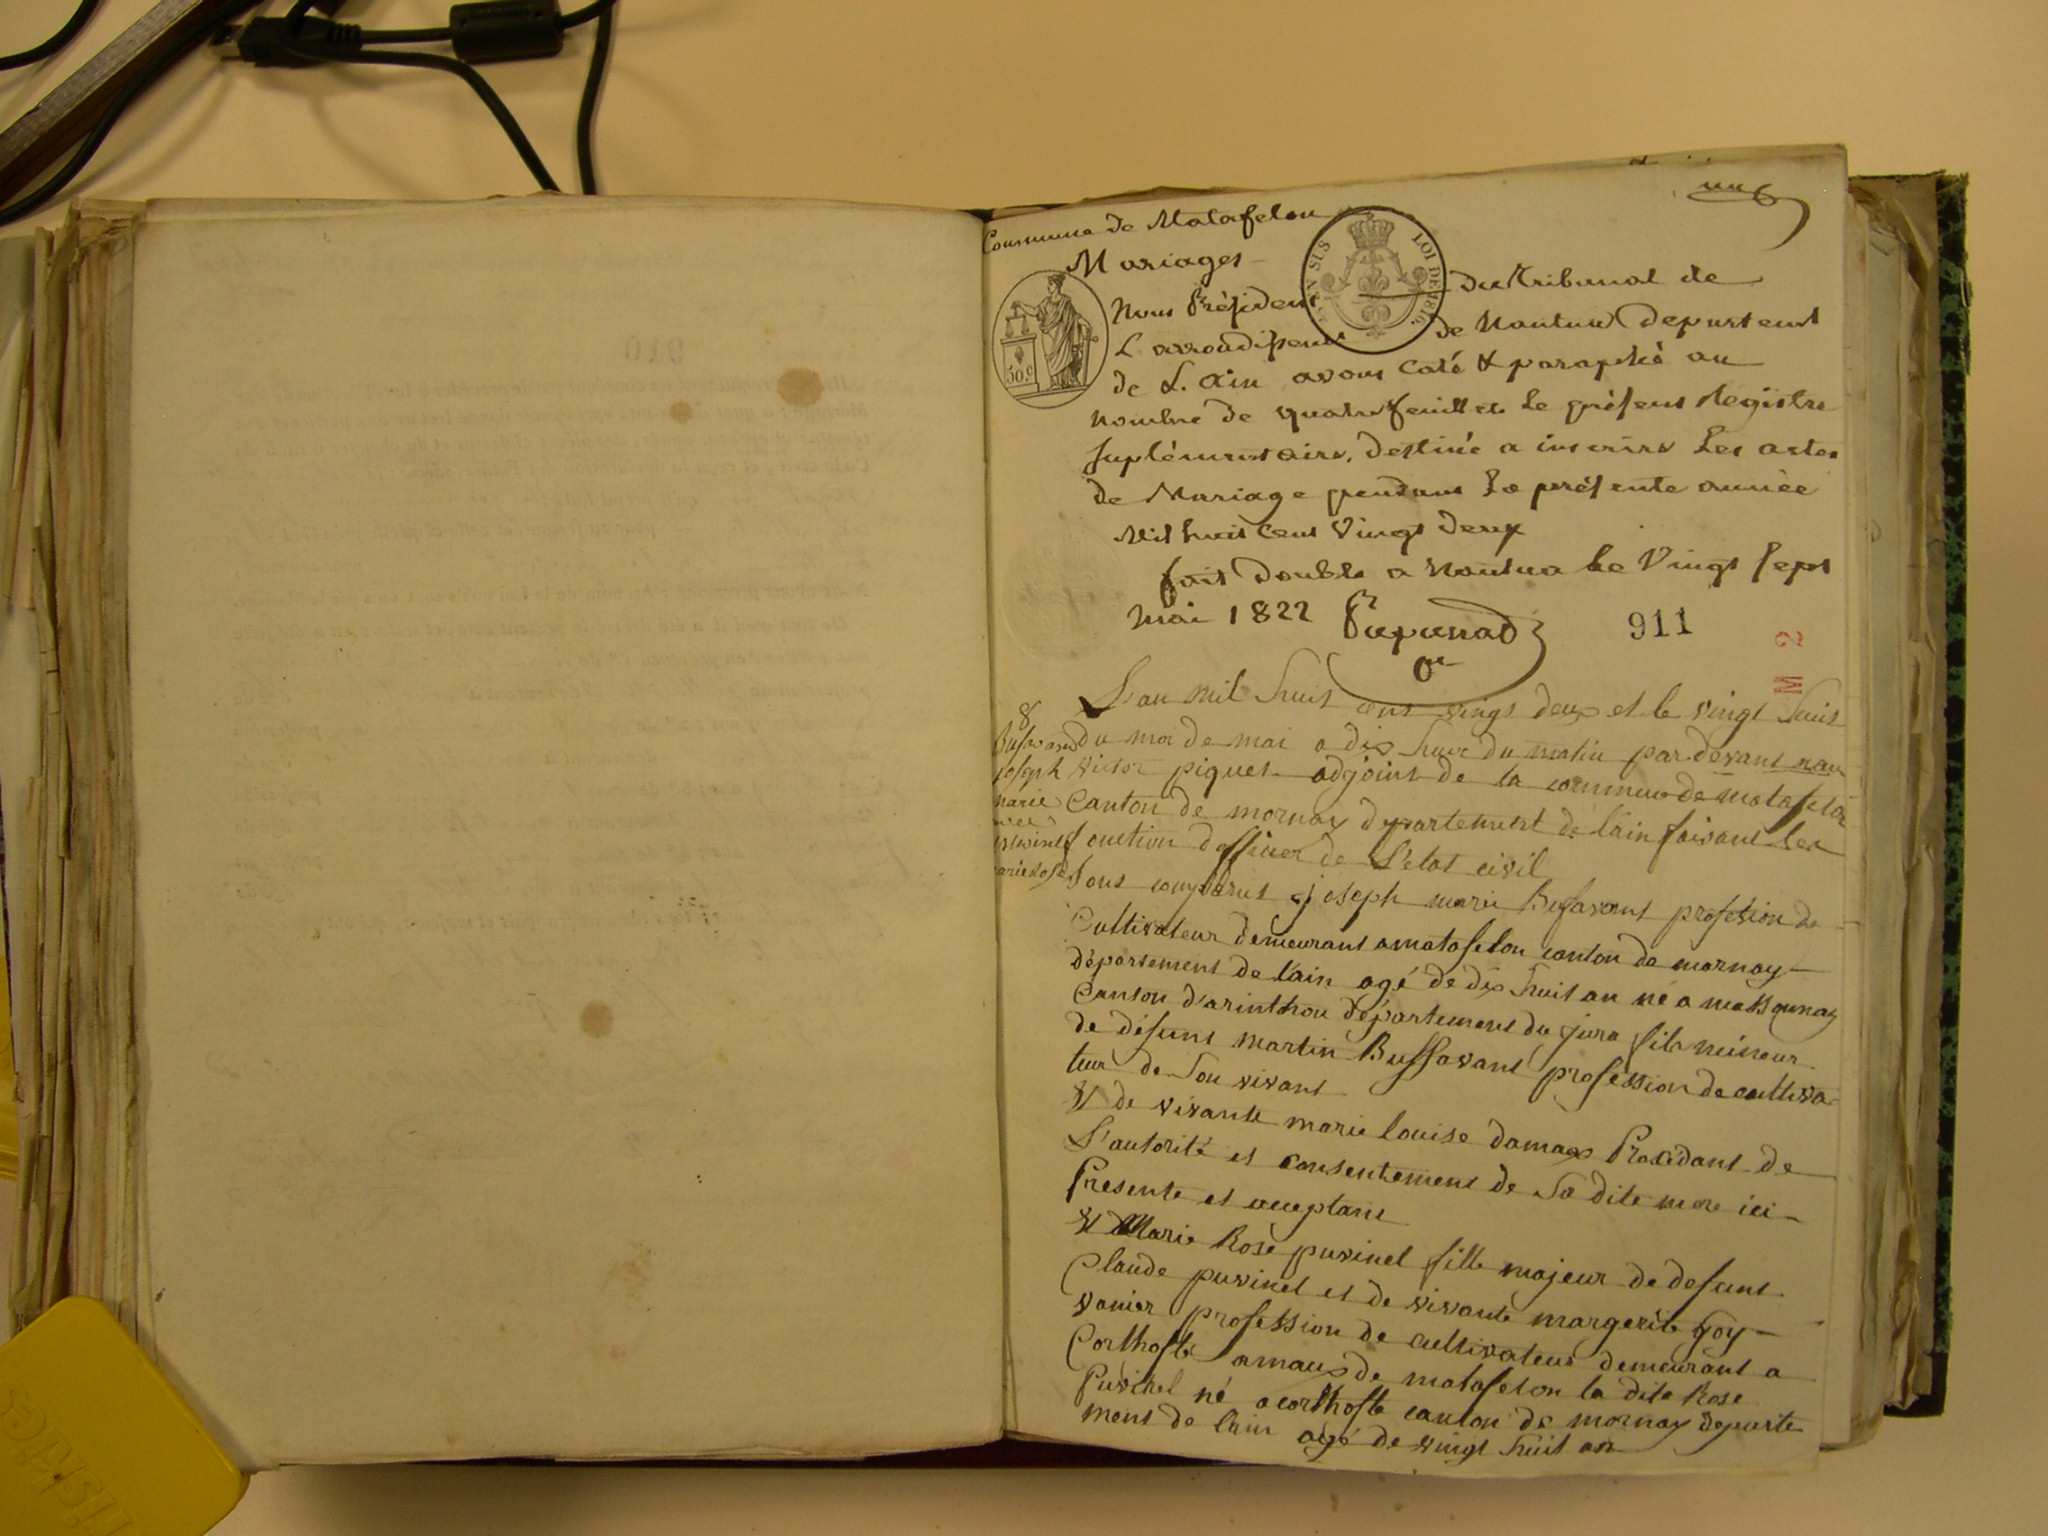 Commune de Matafelon
Mariages
EN SUS LOI DE 1816
Nous Président du tribunal de
L'arrondissement de Nantua département
50 c
de L'Ain avons coté & paraphé au
nombre de quatre feuillets le présent Registre
suplémentaire, destiné a inscrire Les actes
de Mariage pendant La présente année
Mil huit Cent Vingt deux
fait double a Nantua le Vingt sept
mai 1822
911
M 2
L'an mil huit cent vingt deux et le vingt huit
8
Bussavand
joseph
marie
et
puvinel
marie rose
du moi de mai a dix heure du matin par devant nou
victor piquet adjoint de la commune de matafelon
Canton de mornay departement de l'ain faisant les
fonction d'officier de l'etat civil
Sont comparut joseph marie Busavant profesion de
Cultivateur demeurant a matafelon canton de mornay
département de l'ain agé de dix huit an né a
Canton d'arinthou département du jura fils mineur
de défunt martin Bussavant profession de cultiva
teur de Son vivant
& de vivante marie louise damas Procédant de
l'autorité et consentement de Sa dite mere ici
Presente et aceptant
& Marie Rose puvinel fille majeur de defunt
Claude puvinel et de vivante margerite goy
vanier profession de cultivateur demeurant a
Corthoste amaux de matafelon la dite Rose
Puvinel né a corthoste canton de mornay departe
ment de l'ain agé de vingt huit an